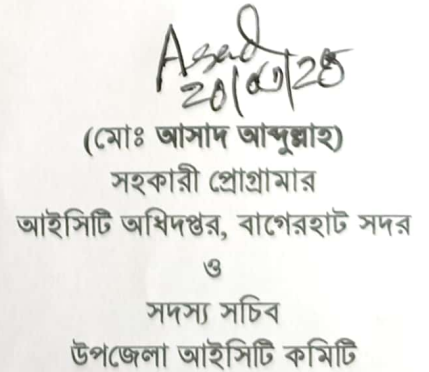 Asad
(মোঃ আসাদ আব্দুল্লাহ)
সহকারী প্রোগ্রামার
আইসিটি অধিদপ্তর, বাগেরহাট সদর
ও
সদস্য সচিব
উপজেলা আইসিটি কমিটি